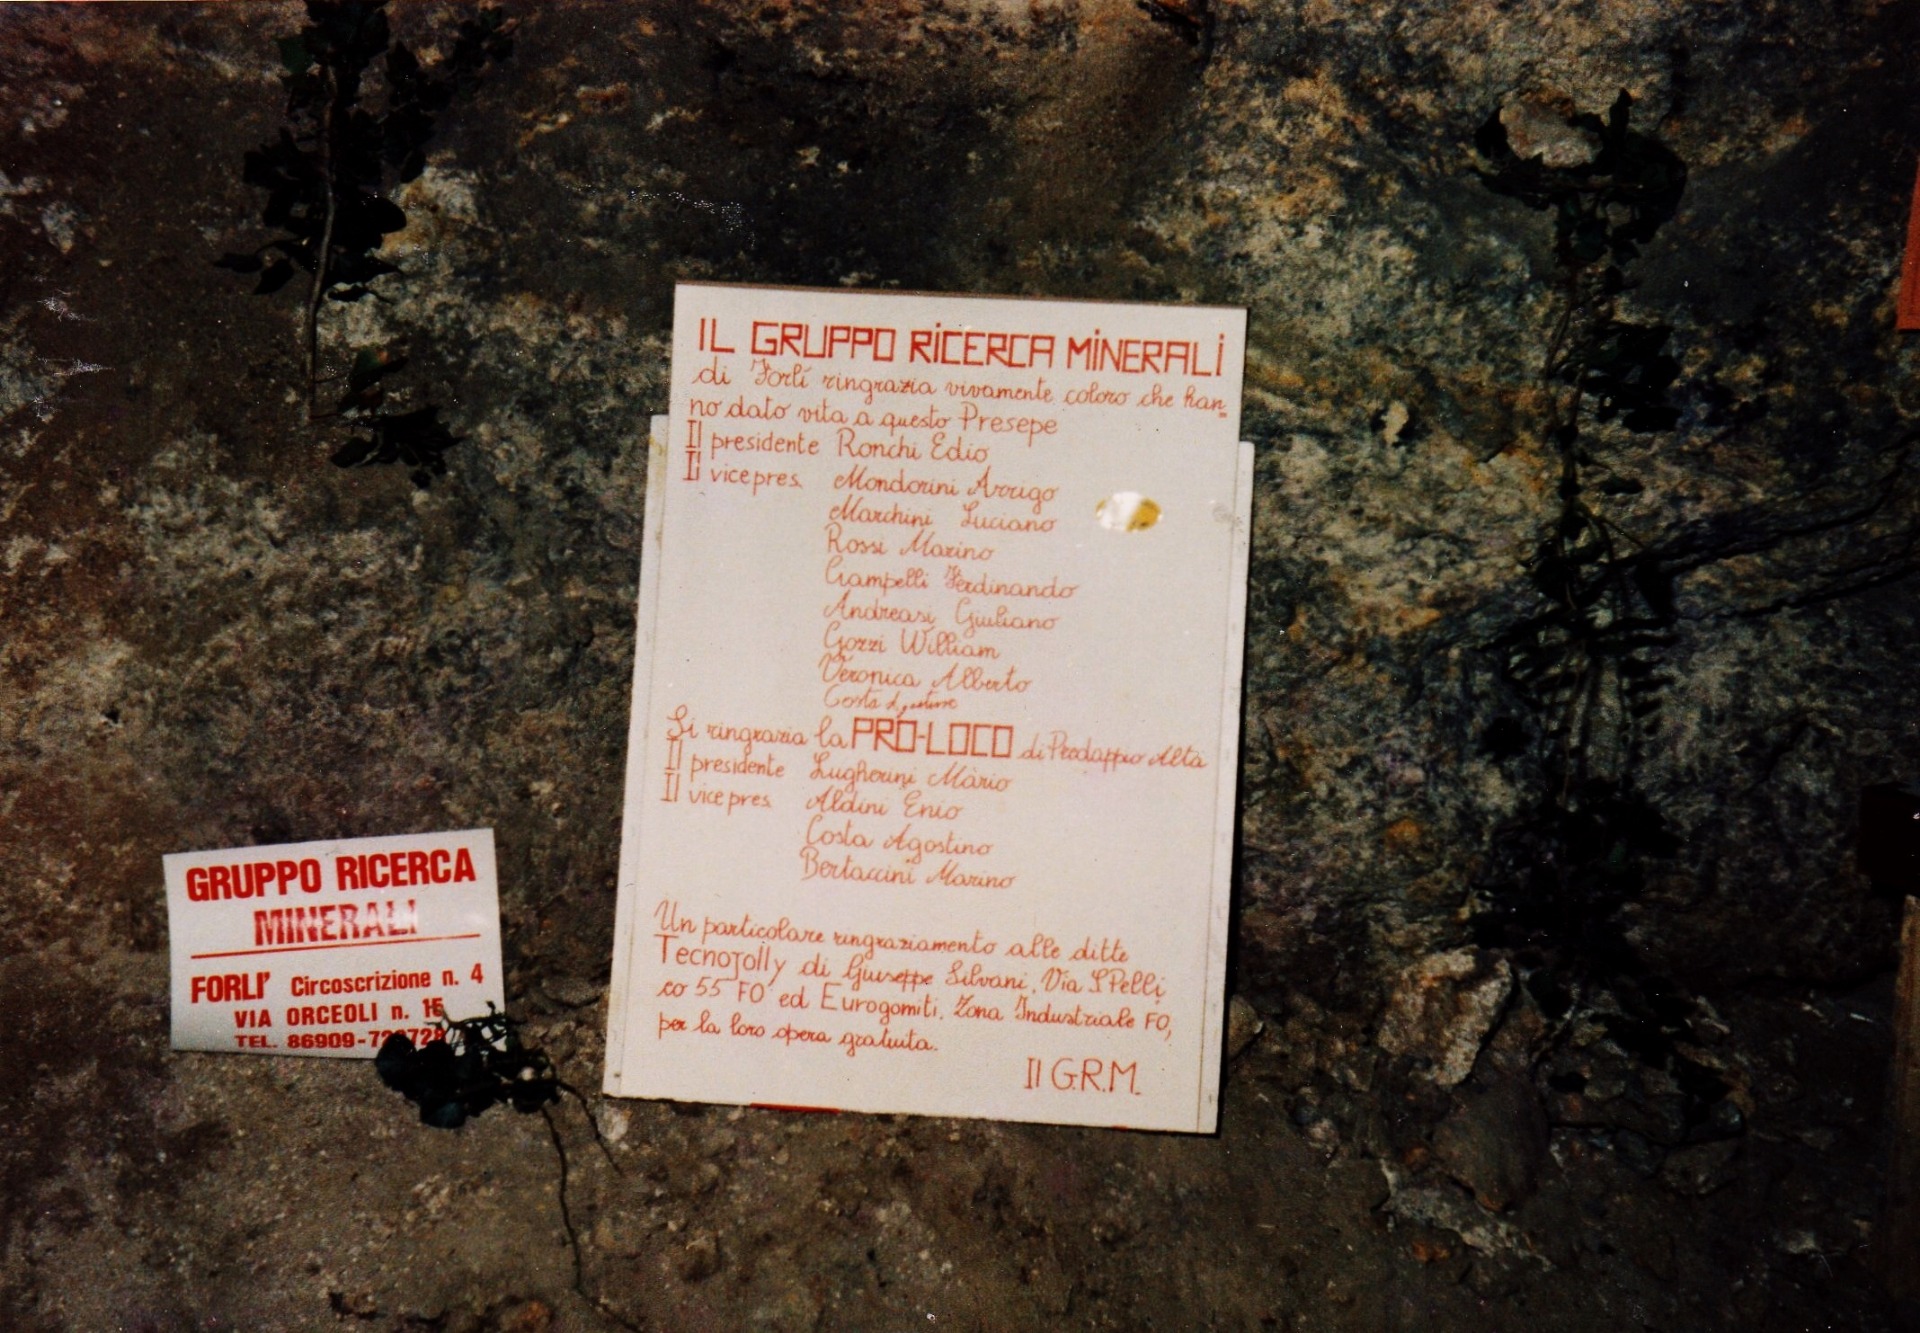 IL GRUPPO RICERCA MINERALI
di Forlí ringrazia vivamente coloro che han=
no dato vita a questo Presepe
Il presidente Ronchi Edio
Il vice pres. Mondorini Arrigo
Marchini Luciano
Rossi Marino
Ciampelli Ferdinando
Andreasi Giuliano
Gozzi William
Veronica Alberto
Costa
Si ringrazia la PRO-LOCO di Predappio Alta
Il presidente Lugherini Mario
Il vice pres. Aldini Enio
Costa Agostino
Bertaccini Marino
Un particolare ringraziamento alle ditte
Tecnojolly di Giuseppe Silvani, Via S Pelli
co 55 FO' ed Eurogomiti, Zona Industriale FO,
per la loro opera gratuita.
Il G.R.M.
GRUPPO RICERCA
MINERALI
FORLI' Circoscrizione n. 4
VIA ORCEOLI n. 15
TEL. 86909-